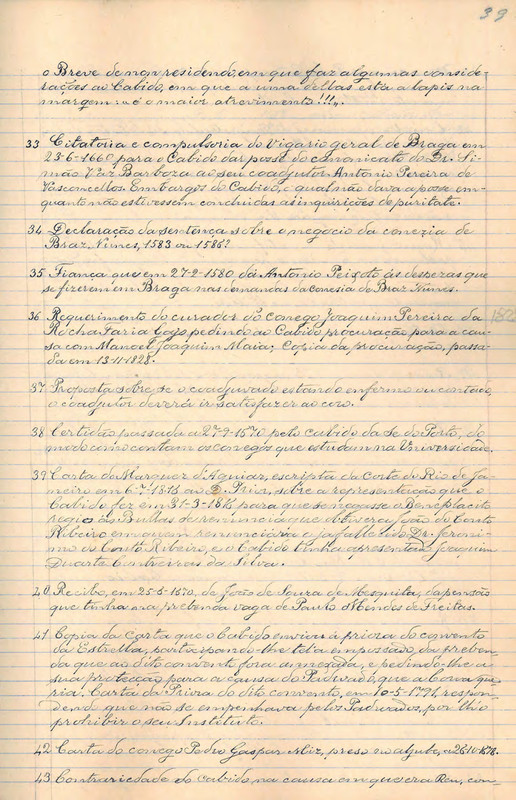 39
o Breve de non residendo, em que faz algumas conside-
rações ao Cabido, em que a uma dellas está a lapis na
margem: "é o maior atrevimento!!!".
33 Citatoria e compulsoria do Vigario geral de Braga em
23-6-1660 para o Cabido dar posse do canonicato do Dr. Si-
mão Vaz Barboza ao seu coadjutor Antonio Pereira de
Vasconcellos. Embargos do Cabido, o qual não dava a posse em-
quanto não estivessem concluidas as inquirições de puritate.
34 Declaração da sentença sobre o negocio da conezia de
Braz Nunes, 1583 ou 1586?
35 Fiança que em 27-2-1580 dá Antonio Peixoto ás despezas que
se fizerem em Braga nas demandas da conesia de Braz Nunes.
36 Requerimento do curador do conego Joaquim Pereira da
Rocha Faria Gajo, pedindo ao Cabido procuração para a cau-
sa com Manoel Joaquim Maia; Copia da procuração, passa-
da em 13-11-1828.
37 Proposta sobre se o coadjuvado estando enfermo ou contado,
o coadjutor deverá ir satisfazer ao coro.
38 Certidão passada a 27-9-1570 pelo cabido da Sé do Porto, do
modo como contam os conegos que estudam na Universidade.
39 Carta do Marquez d'Aguiar, escripta da Corte do Rio de Ja-
neiro em 6-7-1816 ao D. Prior, sobre a representação que o
Cabido fez em 31-3-1816 para que se negasse o Beneplacito
regio ás Bullas de renuncia que obtivera João do Couto
Ribeiro em quem renunciára o fallecido Dr. Jeroni-
mo do Couto Ribeiro, e o Cabido tinha apresentado Joaquim
Duarte Contreiras da Silva.
40 Recibo, em 25-5-1670, de João de Souza de Mesquita, da pensão
que tinha na prebenda vaga de Paulo Mendes de Freitas.
41 Copia da carta que o Cabido enviou á priora do convento
da Estrella, participando-lhe tal a empossão, da preben-
da que ao dito convento fora annexada, e pedindo-lhe a
sua protecção para a causa do Padroado, que a Coroa que-
ria. Carta da Priora do dito convento, em 10-5-1791, respon-
dendo que não se empenhava pelos Padroados, por lh'o
prohibir o seu Instituto.
42 Carta do conego Pedro Gaspar Aliz, preso no aljube, a 26-10-1678.
43 Contrariedade do cabido, na causa em que era Reu, con-